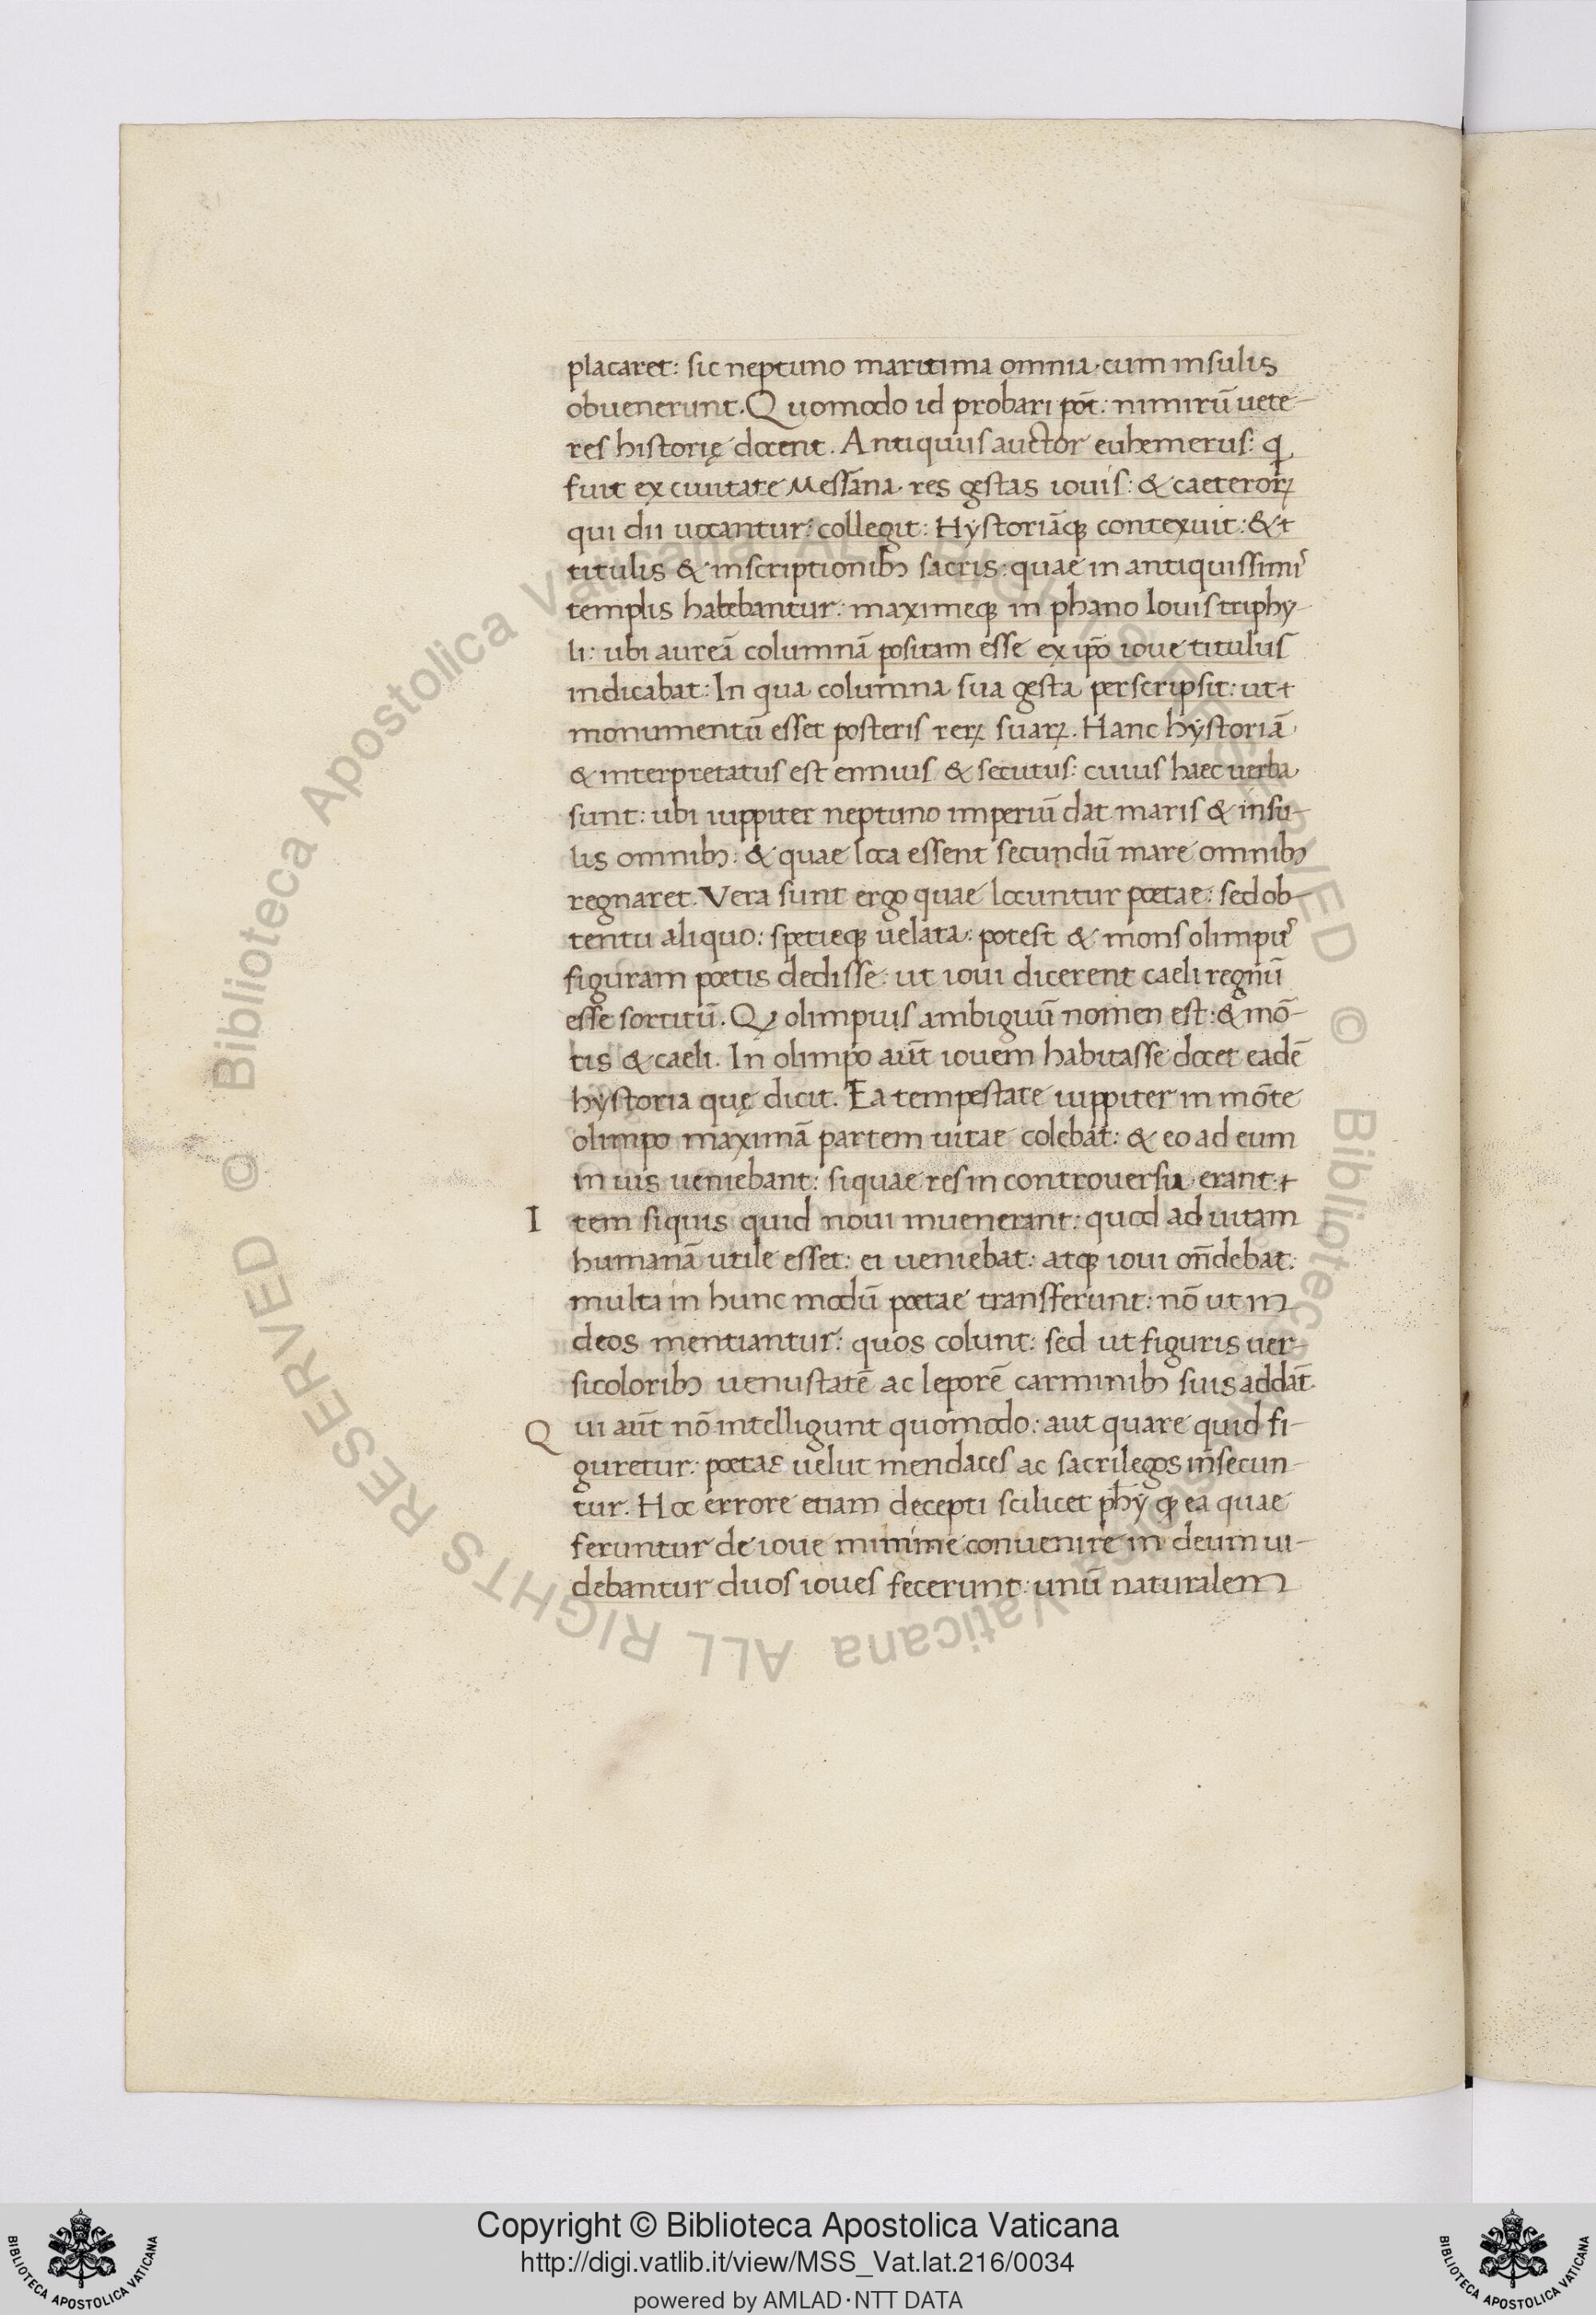 placaret: sic neptuno maritima omnia cum insulis
obuenerunt. Quomodo id probari pōt: nimirū uete-
res historię docent. Antiquus auctor euhemerus: q
fuit ex ciuitate Messana res gestas iouis: & caeteroꝝ
qui dii uocantur: collegit: Hystoriāqꝫ contexuit: &
titulis & inscriptionibꝫ sacris: quae in antiquissimis
templis habebantur: maximeqꝫ in phano Iouis triphy-
li: ubi aureā columnā positam esse ex ipo ioue titulus
indicabat: In qua columna sua gesta perscripsit: ut
monumentū esset posteris reꝝ suaꝝ. Hanc hystoriā
& interpretatus est ennius & secutus: cuius haec uerba
sunt: ubi iuppiter neptuno imperiū dat maris & insu-
lis omnibꝫ: & quae loca essent secundū mare omnibꝫ
regnaret. Vera sunt ergo quae locuntur poetae: sed ob-
tentu aliquo: spetieqꝫ uelata: potest & mons olimpus
figuram poetis dedisse: ut ioui dicerent caeli regnū
esse sortitū. Qꝫ olimpius ambiguū nomen est: & mō-
tis & caeli. In olimpo aut̄ iouem habitasse docet eadē
hystoria quę dicit. Ea tempestate iuppiter in mōte
olimpo maximā partem uitae colebat: & eo ad eum
in uis ueniebant: siquae res in controuersia erant:
I tem siquis quid noui inuenerant: quod ad uitam
humanā utile esset: ei ueniebat: atqꝫ ioui on̄debat:
multa in hunc modū poetae transferunt: nō ut in
deos mentiantur: quos colunt: sed ut figuris uer-
sicoloribꝫ uenustatē ac leporē carminibꝫ suis addāt.
Q ui aut̄ nō intelligunt quomodo: aut quare quid fi-
guretur: poetas uelut mendaces ac sacrilegos insecun-
tur. Hoc errore etiam decepti scilicet phy qꝫ ea quae
feruntur de ioue minime conuenire in deum ui-
debantur duos ioues fecerunt: unū naturalem
Copyright © Biblioteca Apostolica Vaticana
http://digi.vatlib.it/view/MSS_Vat.lat.216/0034
powered by AMLAD·NTT DATA
BIBLIOTECA APOSTOLICA VATICANA
BIBLIOTECA APOSTOLICA VATICANA
© Biblioteca Apostolica Vaticana ALL RIGHTS RESERVED
© Biblioteca Apostolica Vaticana ALL RIGHTS RESERVED